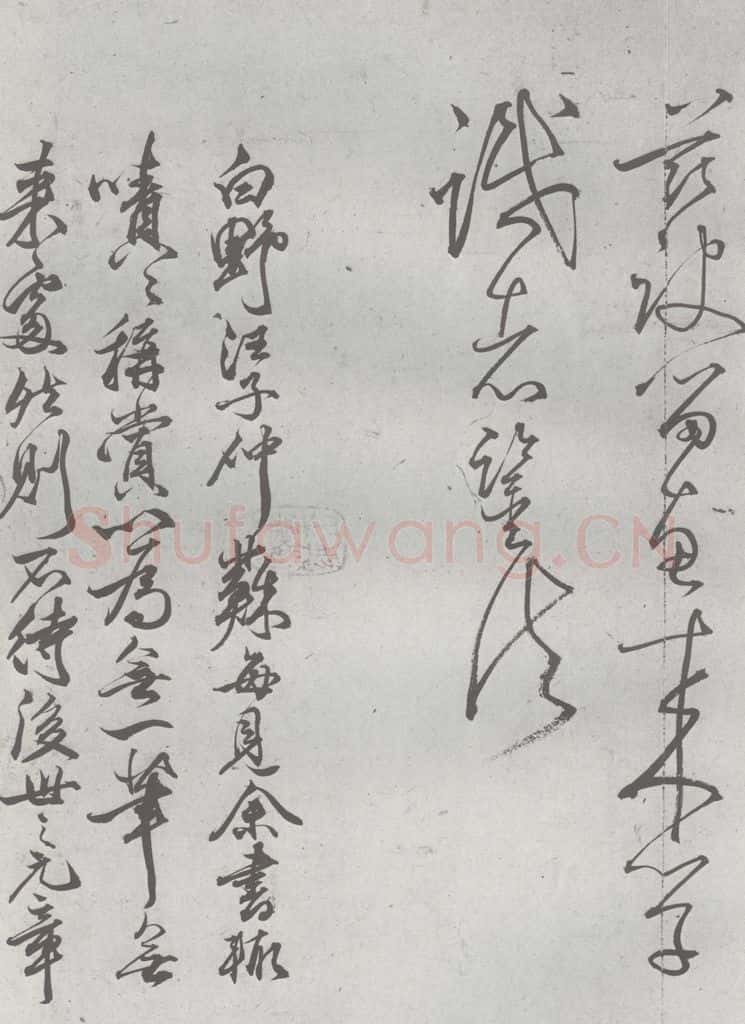 茲破留直未學
識者望法
白野汪子仲蘇每見余書輒
嘖〻稱賞以為無一筆無
來處然則不待後世之元章
Shufawang.CN